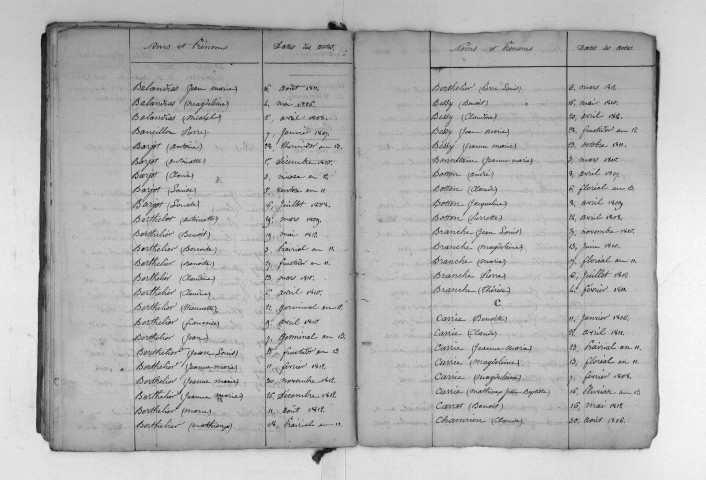 Noms et Prénoms Dates des actes
Balandras (Jean marie) août 1811.
Balandras (magdelaine) mai 1806.
Balandras (michel) avril 1808.
Bancillon (Pierre) 9, Janvier 1807.
Barjot (antoine) thermidor an 13.
Barjot (antoinette) décembre 1810.
Barjot (Claude) nivose an 12.
Barjot (Louise) ventose an 11.
Barjot (Louise) Juillet 1808.
Berthelot (antoinette) mars 1809.
Berthelier (Benoit) mai 1812.
Berthelier (Benoite) 3, prairial an 11.
Berthelier (Benoite) fructidor an 11.
Berthelier (Claudine) mars 1810.
Berthelier (Claudine) avril 1810.
Berthelier germinal an
Berthelier (françoise) avril 1810
Berthelier (Jean) 9, Germinal an 13.
Berthelier (Jean Louis) fructidor an 13.
Berthelier (Jeanne marie) 11, février 1812.
Berthelier (Jeanne marie) 30, novembre 1812.
Berthelier (Jeanne marie) 16, décembre 1812.
Berthelier (marie) 11, août 1812.
Berthelier (mathieu) prairial an 11.
Noms et Prénoms Dates des actes
Berthelier (Louis) 6, mars 1812.
Bessy (Benoit) mai 1810.
Bessy (Claudine) 20, avril 1812.
Bessy (Jean marie) fructidor an 12.
Bessy (Jeanne marie) 13, octobre 1811.
Bonnetterre (Jeanne marie) 3, mars 1810.
Botton (andré) 8, avril 1809.
Botton (Claude) 6 floréal an 13.
Botton (Jacqueline) 8, avril 1809.
Botton (Pierrette) avril 1808.
Branche (Jean Louis) novembre 1810.
Branche (magdelaine) 13, Juin 1810.
Branche (marie) floréal an 11.
Branche (Pierre) 6, Juillet 1812.
Branche (Thérèse) février 1811.
C
Carrie (Benoite) 11, Janvier 1806.
Carrie (Claude) avril 1811.
Carrie (Jeanne marie) 23, prairial an 11.
Carrie (magdelaine) 13, floréal an 11.
Carrie (magdelaine) 9, février 1808.
Carrie (mathieu Jean Baptiste) 16, pluviose an 13
Carrot (Benoit) 16, mai 1812.
Chamrion (Claude) 30, août 1806.